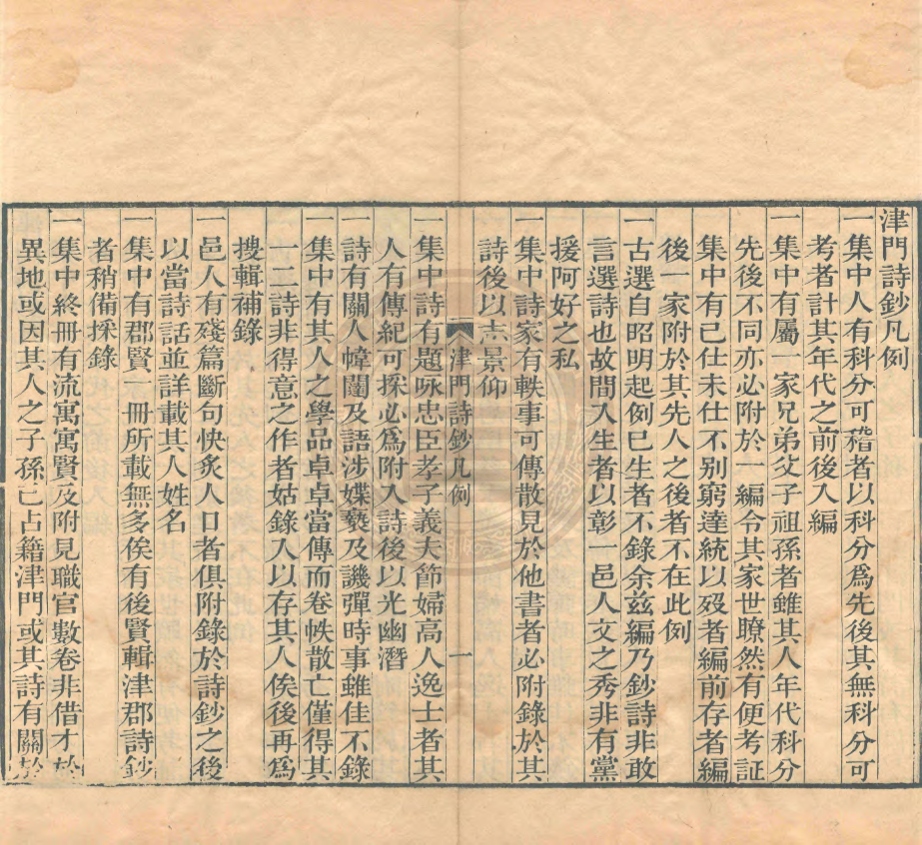 津門詩鈔凡例
一集中人有科分可稽者以科分爲先後其無科分可
考者計其年代之前後入編
一集中有屬一家兄弟父子祖孫者雖其人年代科分
先後不同亦必附於一編令其家世瞭然有便考証
集中有已仕未仕不别窮達統以歿者編前存者編
後一家附於其先人之後者不在此例
一古選自昭明起例巳生者不錄余兹編乃鈔詩非敢
言選詩也故間入生者以彰一邑人文之秀非有黨
援阿好之私
一集中詩家有軼事可傳散見於他書者必附錄於其
詩後以志景仰
津門詩鈔凡例
一
一集中詩有題咏忠臣孝子義夫節婦高人逸士者其
人有傳紀可採必爲附入詩後以光幽潛
一詩有關人幃闥及語涉媟褻及譏彈時事雖佳不錄
一集中有其人之學品卓卓當傳而卷帙散亡僅得其
一二詩非得意之作者姑錄入以存其人俟後再爲
搜輯補錄
一邑人有殘篇斷句快炙人口者俱附錄於詩鈔之後
以當詩話並詳載其人姓名
一集中有郡賢一冊所載無多俟有後賢輯津郡詩鈔
者稍備採錄
一集中終冊有流寓寓賢及附見職官數卷非借才於
異地或因其人之子孫已占籍津門或其詩有關於